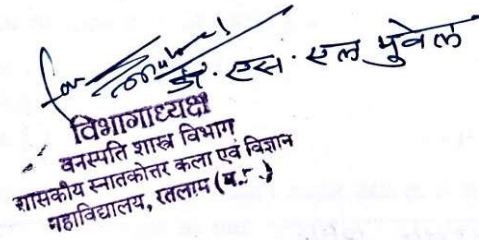 for
डॉ. एस. एल मुवेल
विभागाध्यक्ष
वनस्पति शास्त्र विभाग
शासकीय स्नातकोत्तर कला एवं विज्ञान
महाविद्यालय, रतलाम (म.प्र.)